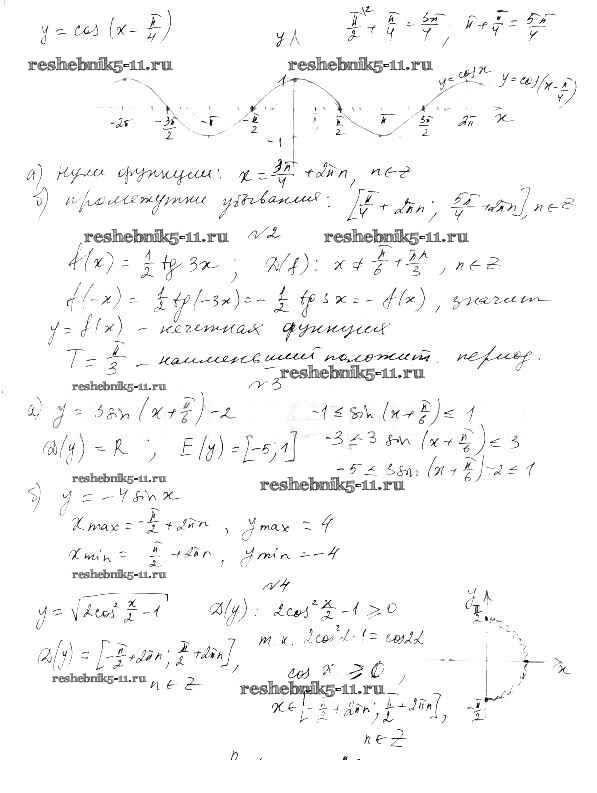 y = cos (x - π/4)
π/2 + π/4 = 3π/4 ; π + π/4 = 5π/4
y
reshebnik5-11.ru
reshebnik5-11.ru
1
y = cos x
y = cos(x - π/4)
-2π -3π/2 -π -π/2 π/2 π 3π/2 2π x
-1
а) нули функции: x = 3π/4 + 2πn, n ∈ Z
б) промежутки убывания: [π/4 + 2πn; 5π/4 + 2πn], n ∈ Z
reshebnik5-11.ru
№2
reshebnik5-11.ru
f(x) = 1/2 tg 3x ; D(f): x ≠ π/6 + πn/3, n ∈ Z
f(-x) = 1/2 tg(-3x) = - 1/2 tg 3x = - f(x), значит
y = f(x) - нечетная функция
T = π/3 - наименьший положит. период.
reshebnik5-11.ru
reshebnik5-11.ru
№3
а) y = 3 sin (x + π/6) - 2
-1 ≤ sin (x + π/6) ≤ 1
D(y) = R ; E(y) = [-5; 1]
-3 ≤ 3 sin (x + π/6) ≤ 3
-5 ≤ 3 sin (x + π/6) - 2 ≤ 1
reshebnik5-11.ru
reshebnik5-11.ru
б) y = -4 sin x
x max = -π/2 + 2πn, y max = 4
x min = π/2 + 2πn, y min = -4
reshebnik5-11.ru
№4
y = √(2cos² x/2 - 1)
D(y): 2cos² x/2 - 1 ≥ 0
D(y) = [-π/2 + 2πn; π/2 + 2πn],
n ∈ Z
т.к. 2cos²α - 1 = cos2α
reshebnik5-11.ru
cos x ≥ 0,
reshebnik5-11.ru
x ∈ [-π/2 + 2πn; π/2 + 2πn],
n ∈ Z
y
π/2
x
-π/2